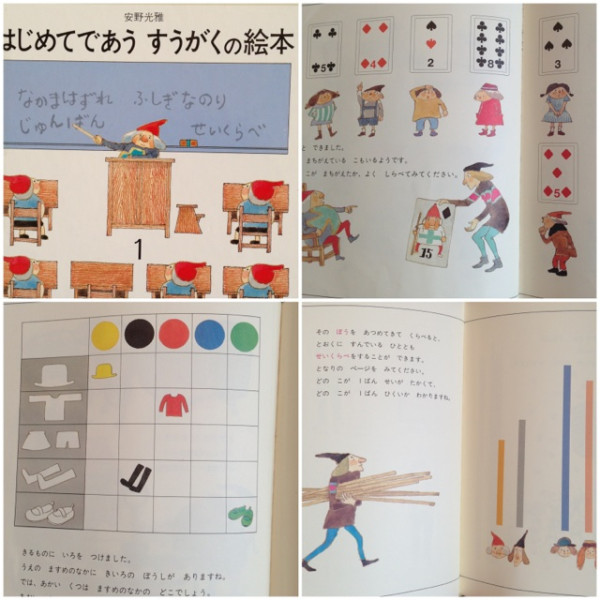 安野光雅
はじめてであう すうがくの絵本
なかまはずれ ふしぎなのり
じゅんばん せいくらべ
1
5 4 2 8 3
と できました。
まちがえている こもいるようです。
こが まちがえたか、よく しらべてみてください。
5
15
きるものに いろを つけました。
うえの ますめのなかに きいろの ぼうしが ありますね。
では、あかい くつは ますめの どこでしょう。
その ぼうを あつめてきて くらべると、
とおくに すんでいる ひととも
せいくらべをすることが できます。
となりの ページを みてください。
どの こが 1ばん せいが たかくて、
どの こが 1ばん ひくいか わかりますね。